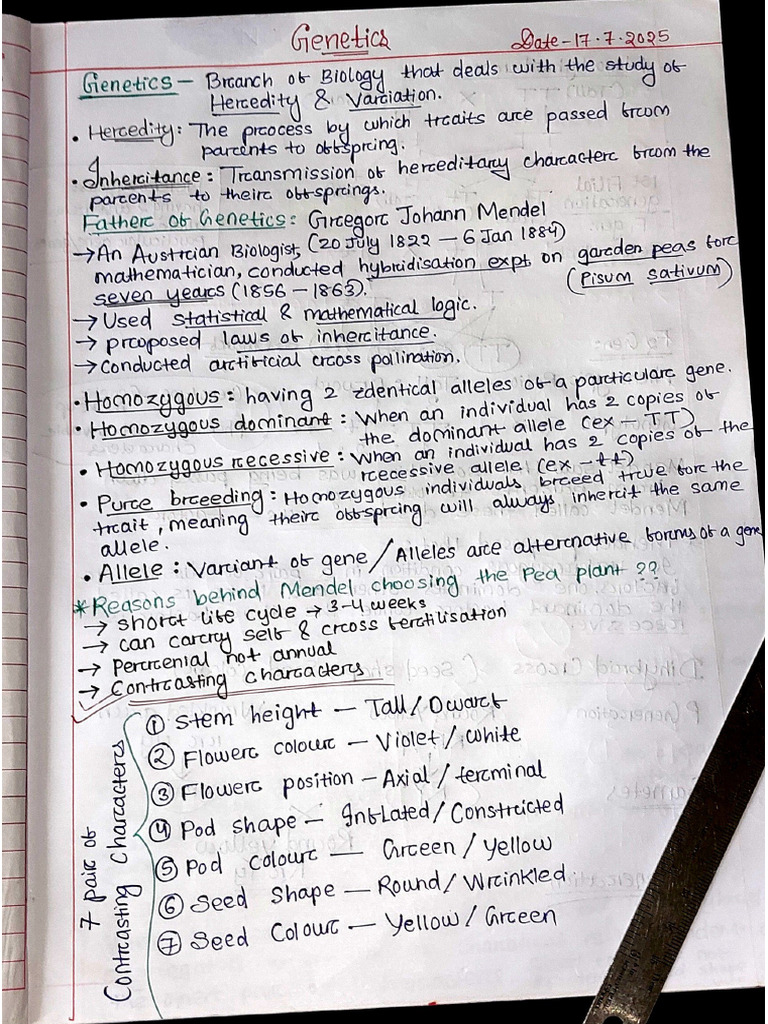 Genetics
Date - 17.7.2025
Genetics - Branch of Biology that deals with the study of
Heredity & Variation.
• Heredity: The process by which traits are passed from
parents to offspring.
• Inheritance: Transmission of hereditary character from the
parents to their offsprings.
Father of Genetics: Gregor Johann Mendel
→ An Austrian Biologist, (20 July 1822 - 6 Jan 1884)
mathematician, conducted hybridisation expt on garden peas for
seven years (1856 - 1863). (Pisum sativum)
→ Used statistical & mathematical logic.
→ proposed laws of inheritance.
→ Conducted artificial cross pollination.
• Homozygous: having 2 identical alleles of a particular gene.
• Homozygous dominant: When an individual has 2 copies of
the dominant allele (ex - TT)
• Homozygous recessive: When an individual has 2 copies of the
recessive allele (ex - tt)
• Pure breeding: Homozygous individuals breed true for the
trait, meaning their offspring will always inherit the same
allele.
• Allele: Variant of gene / Alleles are alternative forms of a gene
* Reasons behind Mendel choosing the Pea plant ??
→ short life cycle → 3-4 weeks
→ can carry self & cross fertilisation
→ Perennial not annual
→ Contrasting characters
7 pair of
Contrasting Characters
① Stem height - Tall / Dwarf
② Flower colour - Violet / white
③ Flower position - Axial / terminal
④ Pod shape - Inflated / Constricted
⑤ Pod colour - Green / Yellow
⑥ Seed Shape - Round / Wrinkled
⑦ Seed Colour - Yellow / Green